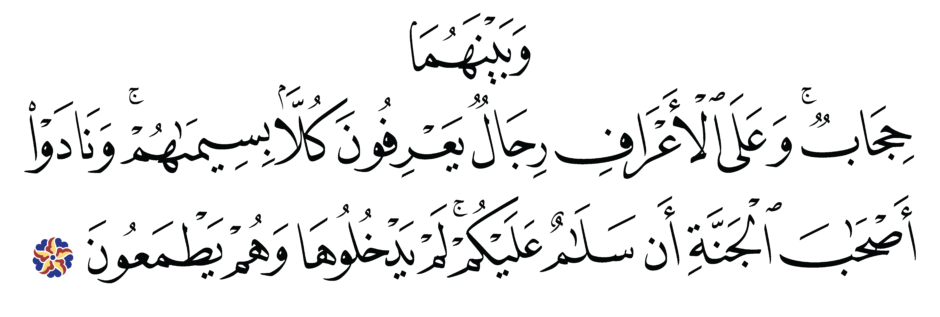 وَبَيْنَهُمَا
حِجَابٌۚ وَعَلَى ٱلْأَعْرَافِ رِجَالٌ يَعْرِفُونَ كُلَّۢا بِسِيمَىٰهُمْۚ وَنَادَوْا۟
أَصْحَٰبَ ٱلْجَنَّةِ أَن سَلَٰمٌ عَلَيْكُمْۚ لَمْ يَدْخُلُوهَا وَهُمْ يَطْمَعُونَ